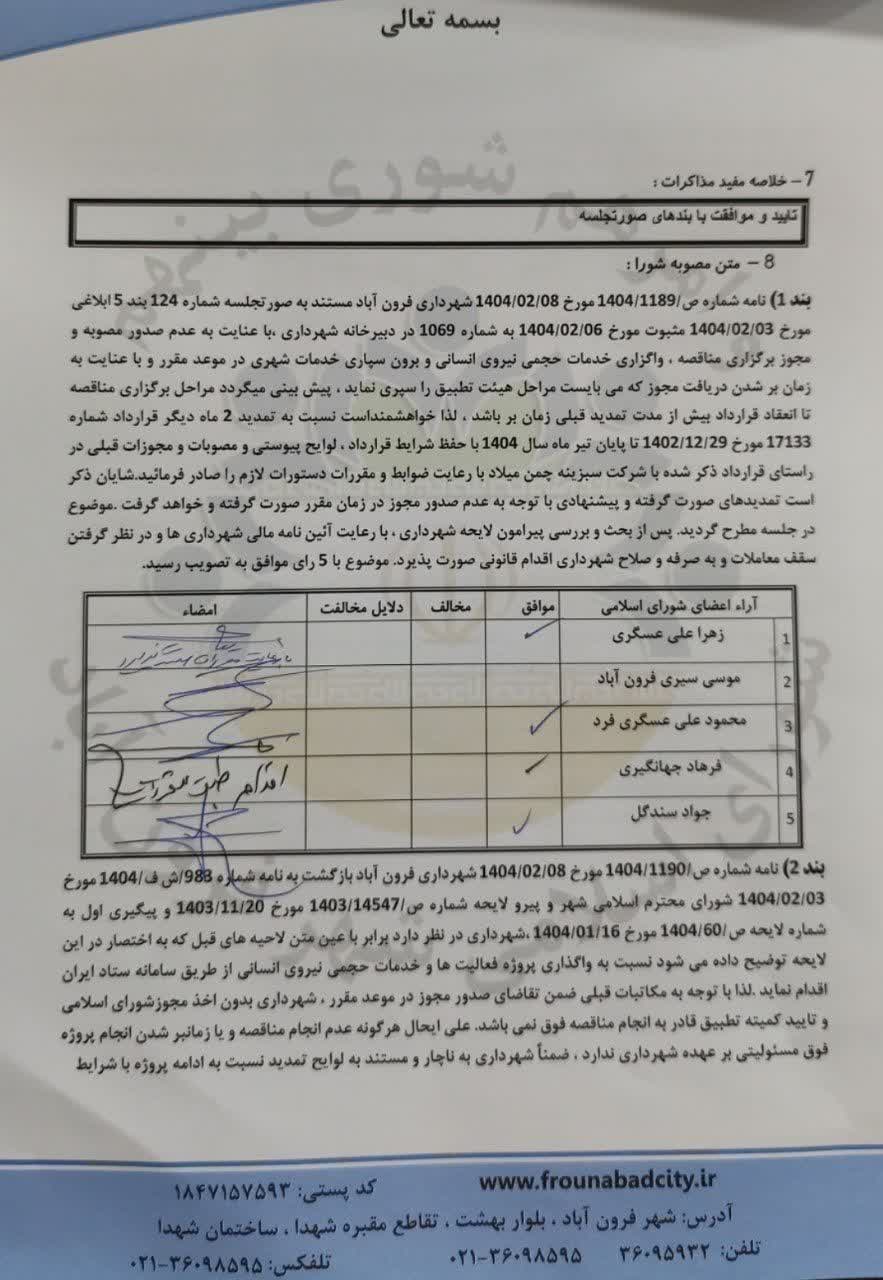 بسمه تعالی
7 – خلاصه مفید مذاکرات :
تایید و موافقت با بندهای صورتجلسه
8 – متن مصوبه شورا :
بند 1) نامه شماره ص/1404/1189 مورخ 1404/02/08 شهرداری فرون آباد مستند به صورتجلسه شماره 124 بند 5 ابلاغی
مورخ 1404/02/03 مثبوت مورخ 1404/02/06 به شماره 1069 در دبیرخانه شهرداری ،با عنایت به عدم صدور مصوبه و
مجوز برگزاری مناقصه ، واگزاری خدمات حجمی نیروی انسانی و برون سپاری خدمات شهری در موعد مقرر و با عنایت به
زمان بر شدن دریافت مجوز که می بایست مراحل هیئت تطبیق را سپری نماید ، پیش بینی میگردد مراحل برگزاری مناقصه
تا انعقاد قرارداد بیش از مدت تمدید قبلی زمان بر باشد ، لذا خواهشمنداست نسبت به تمدید 2 ماه دیگر قرارداد شماره
17133 مورخ 1402/12/29 تا پایان تیر ماه سال 1404 با حفظ شرایط قرارداد ، لوایح پیوستی و مصوبات و مجوزات قبلی در
راستای قرارداد ذکر شده با شرکت سبزینه چمن میلاد با رعایت ضوابط و مقررات دستورات لازم را صادر فرمائید.شایان ذکر
است تمدیدهای صورت گرفته و پیشنهادی با توجه به عدم صدور مجوز در زمان مقرر صورت گرفته و خواهد گرفت .موضوع
در جلسه مطرح گردید. پس از بحث و بررسی پیرامون لایحه شهرداری ، با رعایت آئین نامه مالی شهرداری ها و در نظر گرفتن
سقف معاملات و به صرفه و صلاح شهرداری اقدام قانونی صورت پذیرد. موضوع با 5 رای موافق به تصویب رسید.
آراء اعضای شورای اسلامی موافق مخالف دلایل مخالفت امضاء
1 زهرا علی عسگری
2 موسی سیری فرون آباد
3 محمود علی عسگری فرد
4 فرهاد جهانگیری اقدام طبق مقررات
5 جواد سندگل
بند 2) نامه شماره ص/1404/1190 مورخ 1404/02/08 شهرداری فرون آباد بازگشت به نامه شماره 983/ش ف/1404 مورخ
1404/02/03 شورای محترم اسلامی شهر و پیرو لایحه شماره ص/1403/14547 مورخ 1403/11/20 و پیگیری اول به
شماره لایحه ص/1404/60 مورخ 1404/01/16 ،شهرداری در نظر دارد برابر با عین متن لاحیه های قبل که به اختصار در این
لایحه توضیح داده می شود نسبت به واگذاری پروژه فعالیت ها و خدمات حجمی نیروی انسانی از طریق سامانه ستاد ایران
اقدام نماید .لذا با توجه به مکاتبات قبلی ضمن تقاضای صدور مجوز در موعد مقرر ، شهرداری بدون اخذ مجوزشورای اسلامی
و تایید کمیته تطبیق قادر به انجام مناقصه فوق نمی باشد. علی ایحال هرگونه عدم انجام مناقصه و یا زمانبر شدن انجام پروژه
فوق مسئولیتی بر عهده شهرداری ندارد ، ضمناً شهرداری به ناچار و مستند به لوایح تمدید نسبت به ادامه پروژه با شرایط
www.frounabadcity.ir کد پستی: ۱۸۴۷۱۵۷۵۹۳
آدرس: شهر فرون آباد ، بلوار بهشت ، تقاطع مقبره شهدا ، ساختمان شهدا
تلفن: ۳۶۰۹۵۹۳۲ ۰۲۱-۳۶۰۹۸۵۹۵ تلفکس: ۰۲۱-۳۶۰۹۸۵۹۵